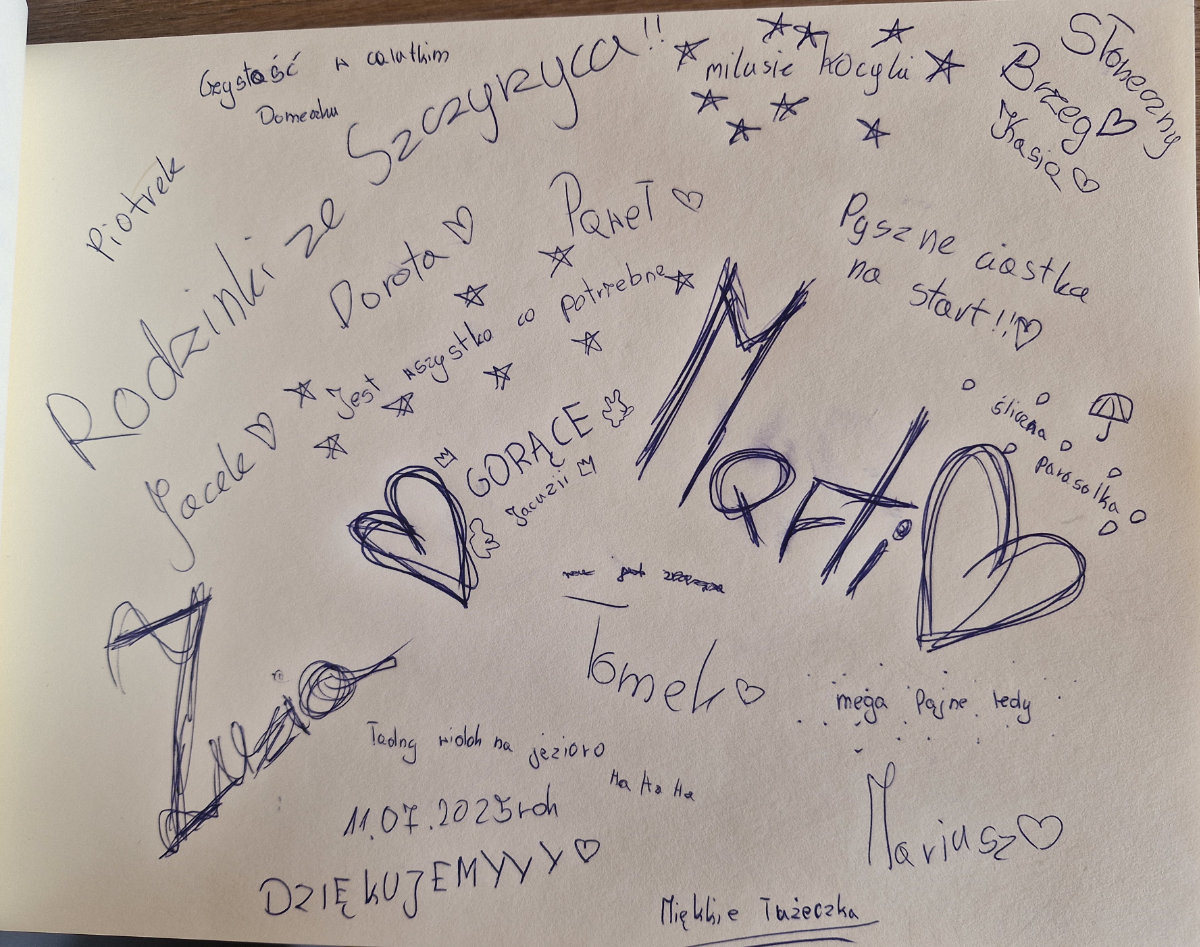 Czystość w calutkim
Domeczku
Rodzinki ze Szczyrzyca!!
milusie kocyki
Słoneczny
Brzeg
Kasia
Piotrek
Dorota
Paweł
Pyszne ciastka
na start!!
Jest wszystko co potrzebne
Jacek
GORĄCE
Jacuzii
Marti
śliczna
parasolka
Zuzia
Tomek
mega fajne ledy
Ładny widok na jezioro
Ha Ha Ha
11.07.2025rok
Mariusz
DZIĘKUJEMYYYY
Miękkie Łużeczka